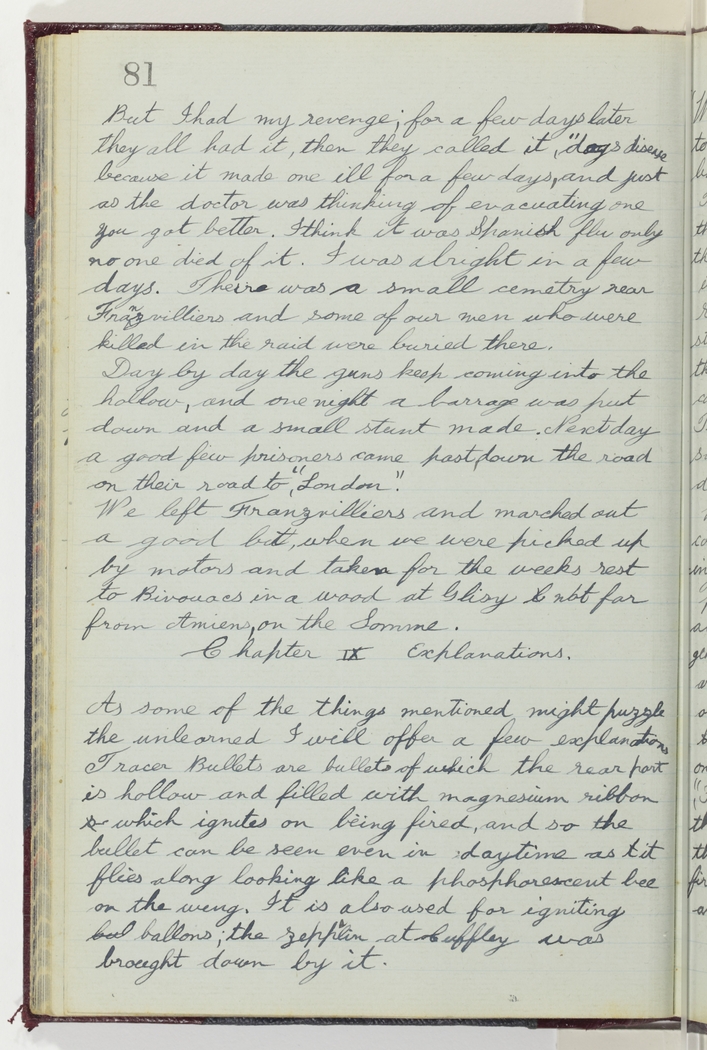 81
But I had my revenge; for a few days later
they all had it, then they called it, "dogs disease
because it made one ill for a few days, and just
as the doctor was thinking of evacuating one
you got better. I think it was Spanish flu only
no one died of it. I was alright in a few
days. There was a small cemetry near
Franzvilliers and some of our men who were
killed in the raid were buried there.
Day by day the guns keep coming into the
hollow, and one night a barrage was put
down and a small stunt made. Next day
a good few prisoners came past, down the road
on their road to, "London".
We left Franzvilliers and marched out
a good bit, when we were picked up
by motors and taken for the weeks rest
to Bivouacs in a wood at Glisy not far
from Amiens, on the Somme.
Chapter IX Explanations.
As some of the things mentioned might puzzle
the unlearned I will offer a few explanations
Tracer Bullets are bullets of which the rear part
is hollow and filled with magnesium ribbon
which ignites on being fired, and so the
bullet can be seen even in daytime as it
flies along looking like a phosphorescent bee
on the wing. It is also used for igniting
bal ballons; the zepplin at Cuffley was
brought down by it.